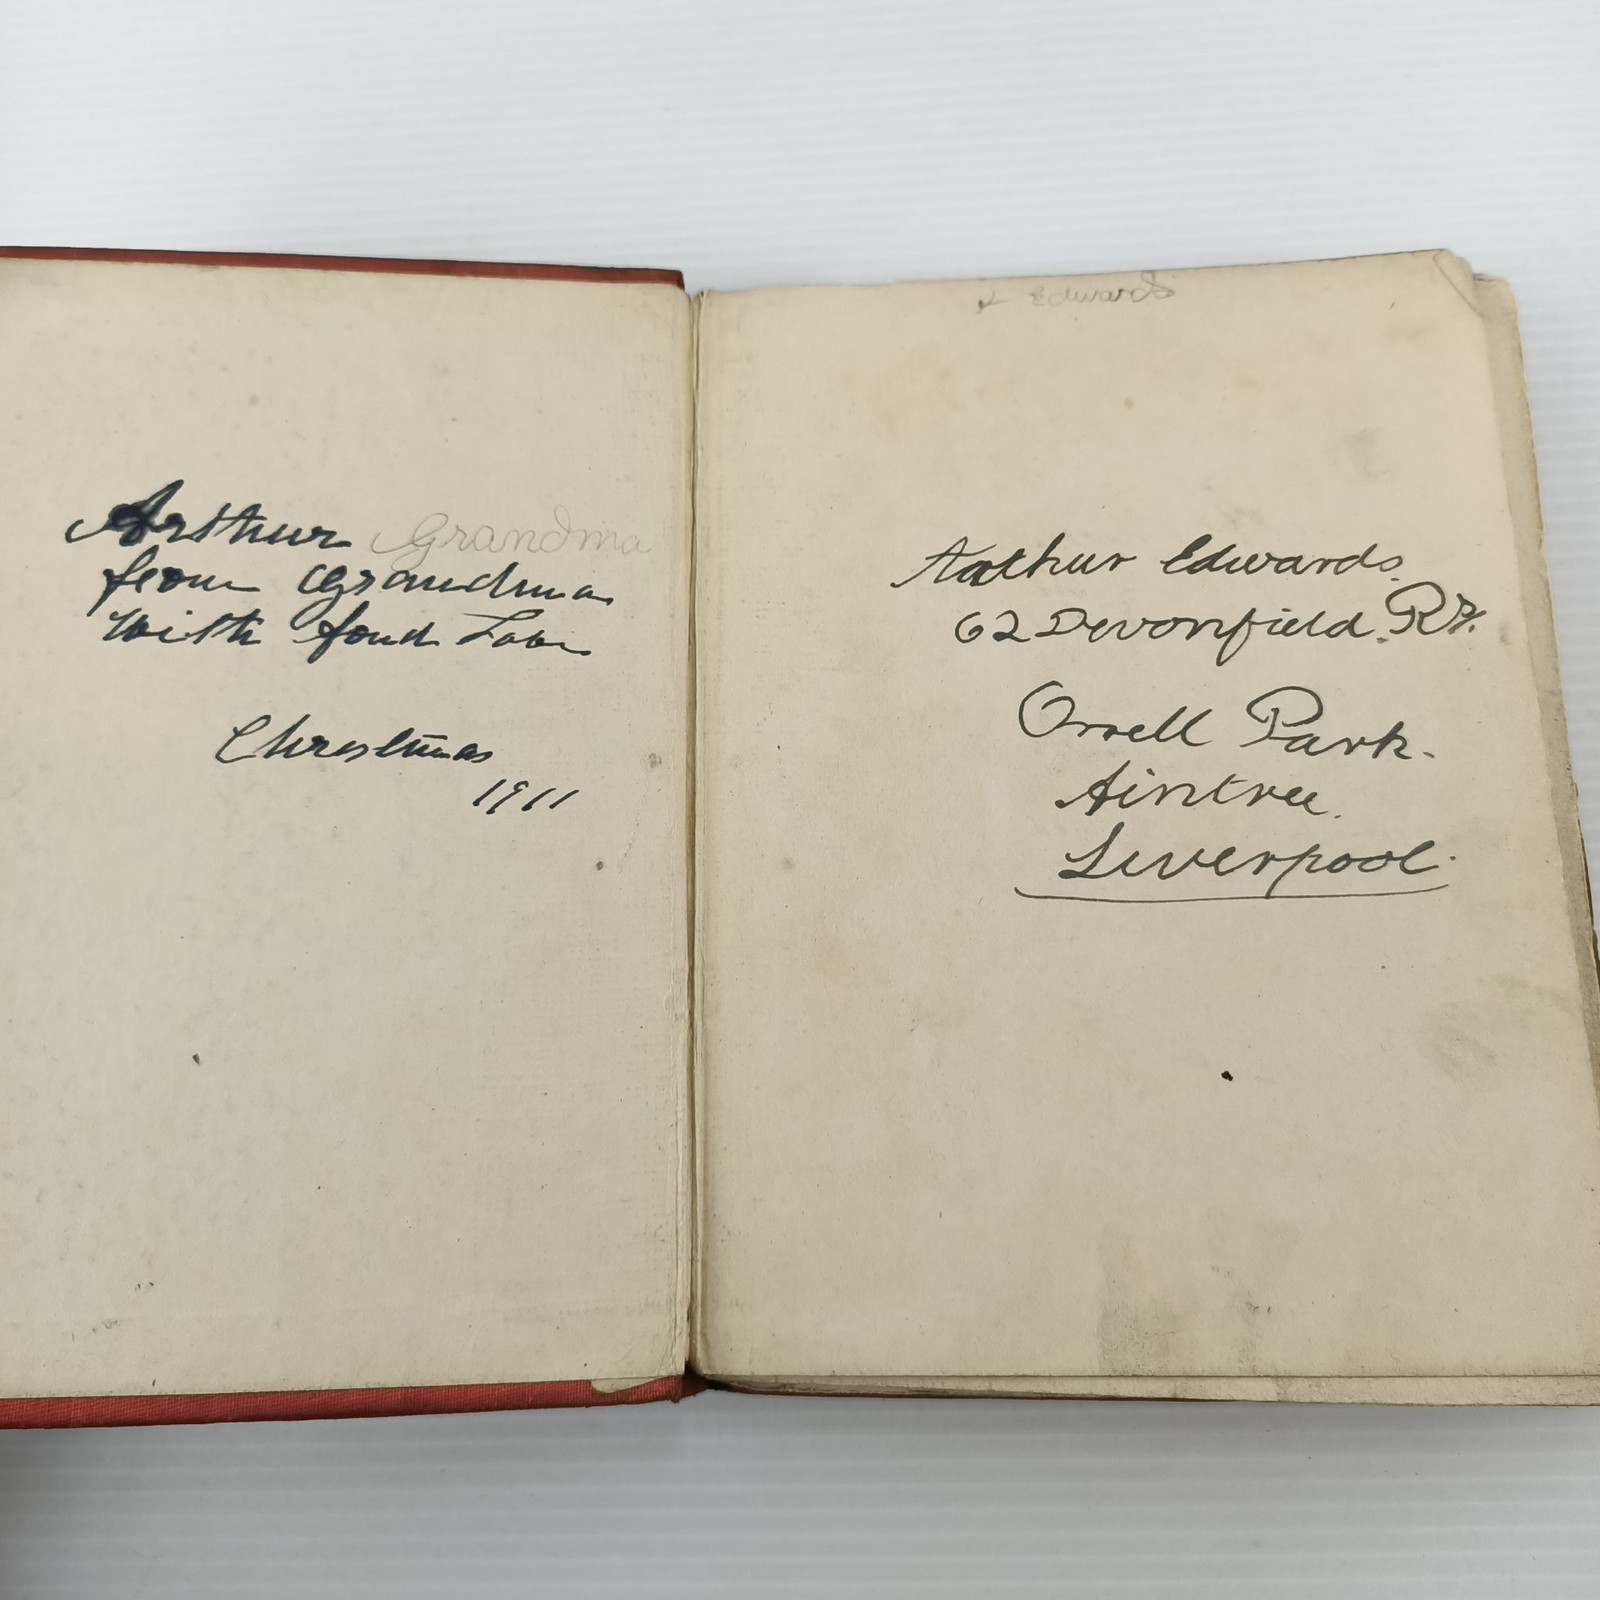 Arthur Grandma
from Grandma
With fond Love
Christmas
1911
Edwards
Arthur Edwards.
62 Devonfield. Rd.
Orrell Park.
Aintree.
Liverpool.